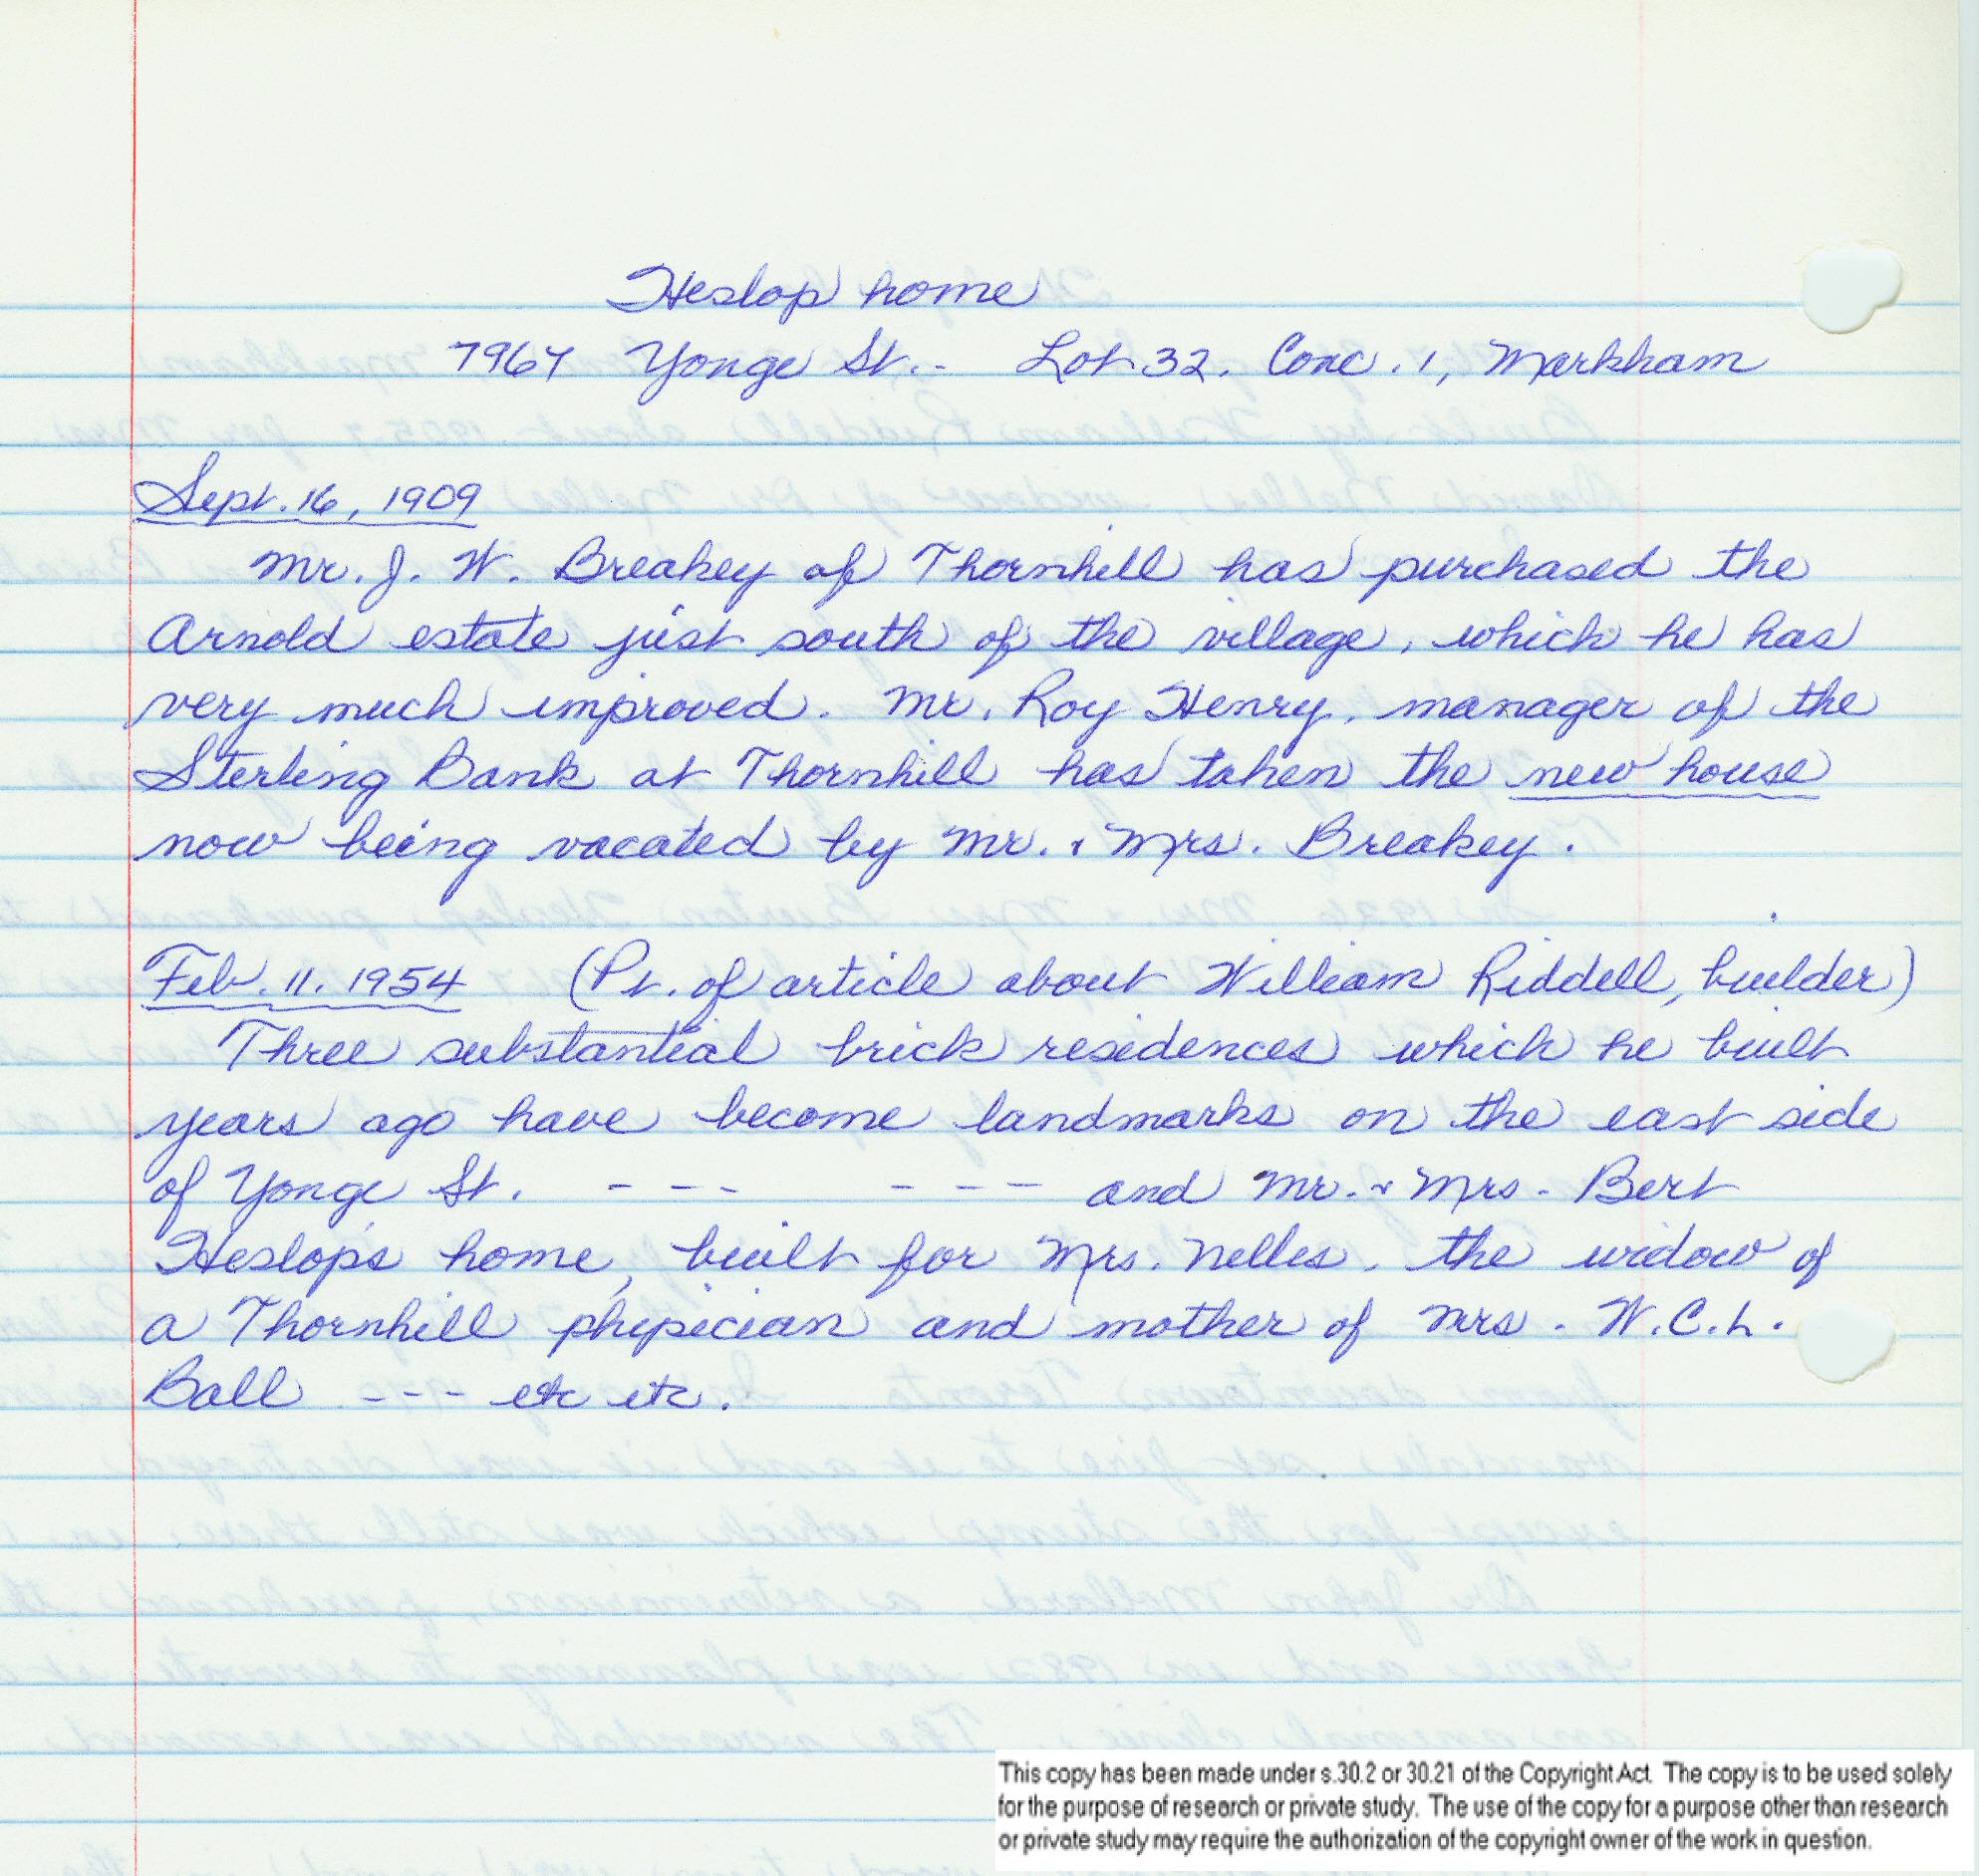 Heslop home
7967 Yonge St. - Lot 32. Conc. 1, Markham
Sept. 16, 1909
Mr. J. W. Breakey of Thornhill has purchased the
Arnold estate just south of the village, which he has
very much improved. Mr. Roy Henry, manager of the
Sterling Bank at Thornhill has taken the new house
now being vacated by Mr. & Mrs. Breakey.
Feb. 11. 1954 (Pt. of article about William Riddell, builder)
Three substantial brick residences which he built
years ago have become landmarks on the east side
of Yonge St. - - - - - - and Mr. & Mrs. Bert
Heslop's home, built for Mrs. Nelles, the widow of
a Thornhill physician and mother of Mrs. W.C.L.
Ball - - - etc etc.
This copy has been made under s.30.2 or 30.21 of the Copyright Act. The copy is to be used solely
for the purpose of research or private study. The use of the copy for a purpose other than research
or private study may require the authorization of the copyright owner of the work in question.